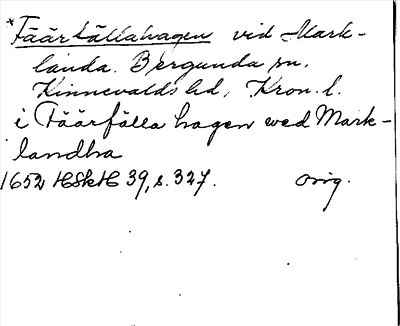 *Fäärfällahagen vid Mark-
landa. Bergunda sn.
Kinnevalds hd, Kron. l.
i Fäärfälla hagen wed Mark-
landha
1652 HSkH 39, s. 327. orig.